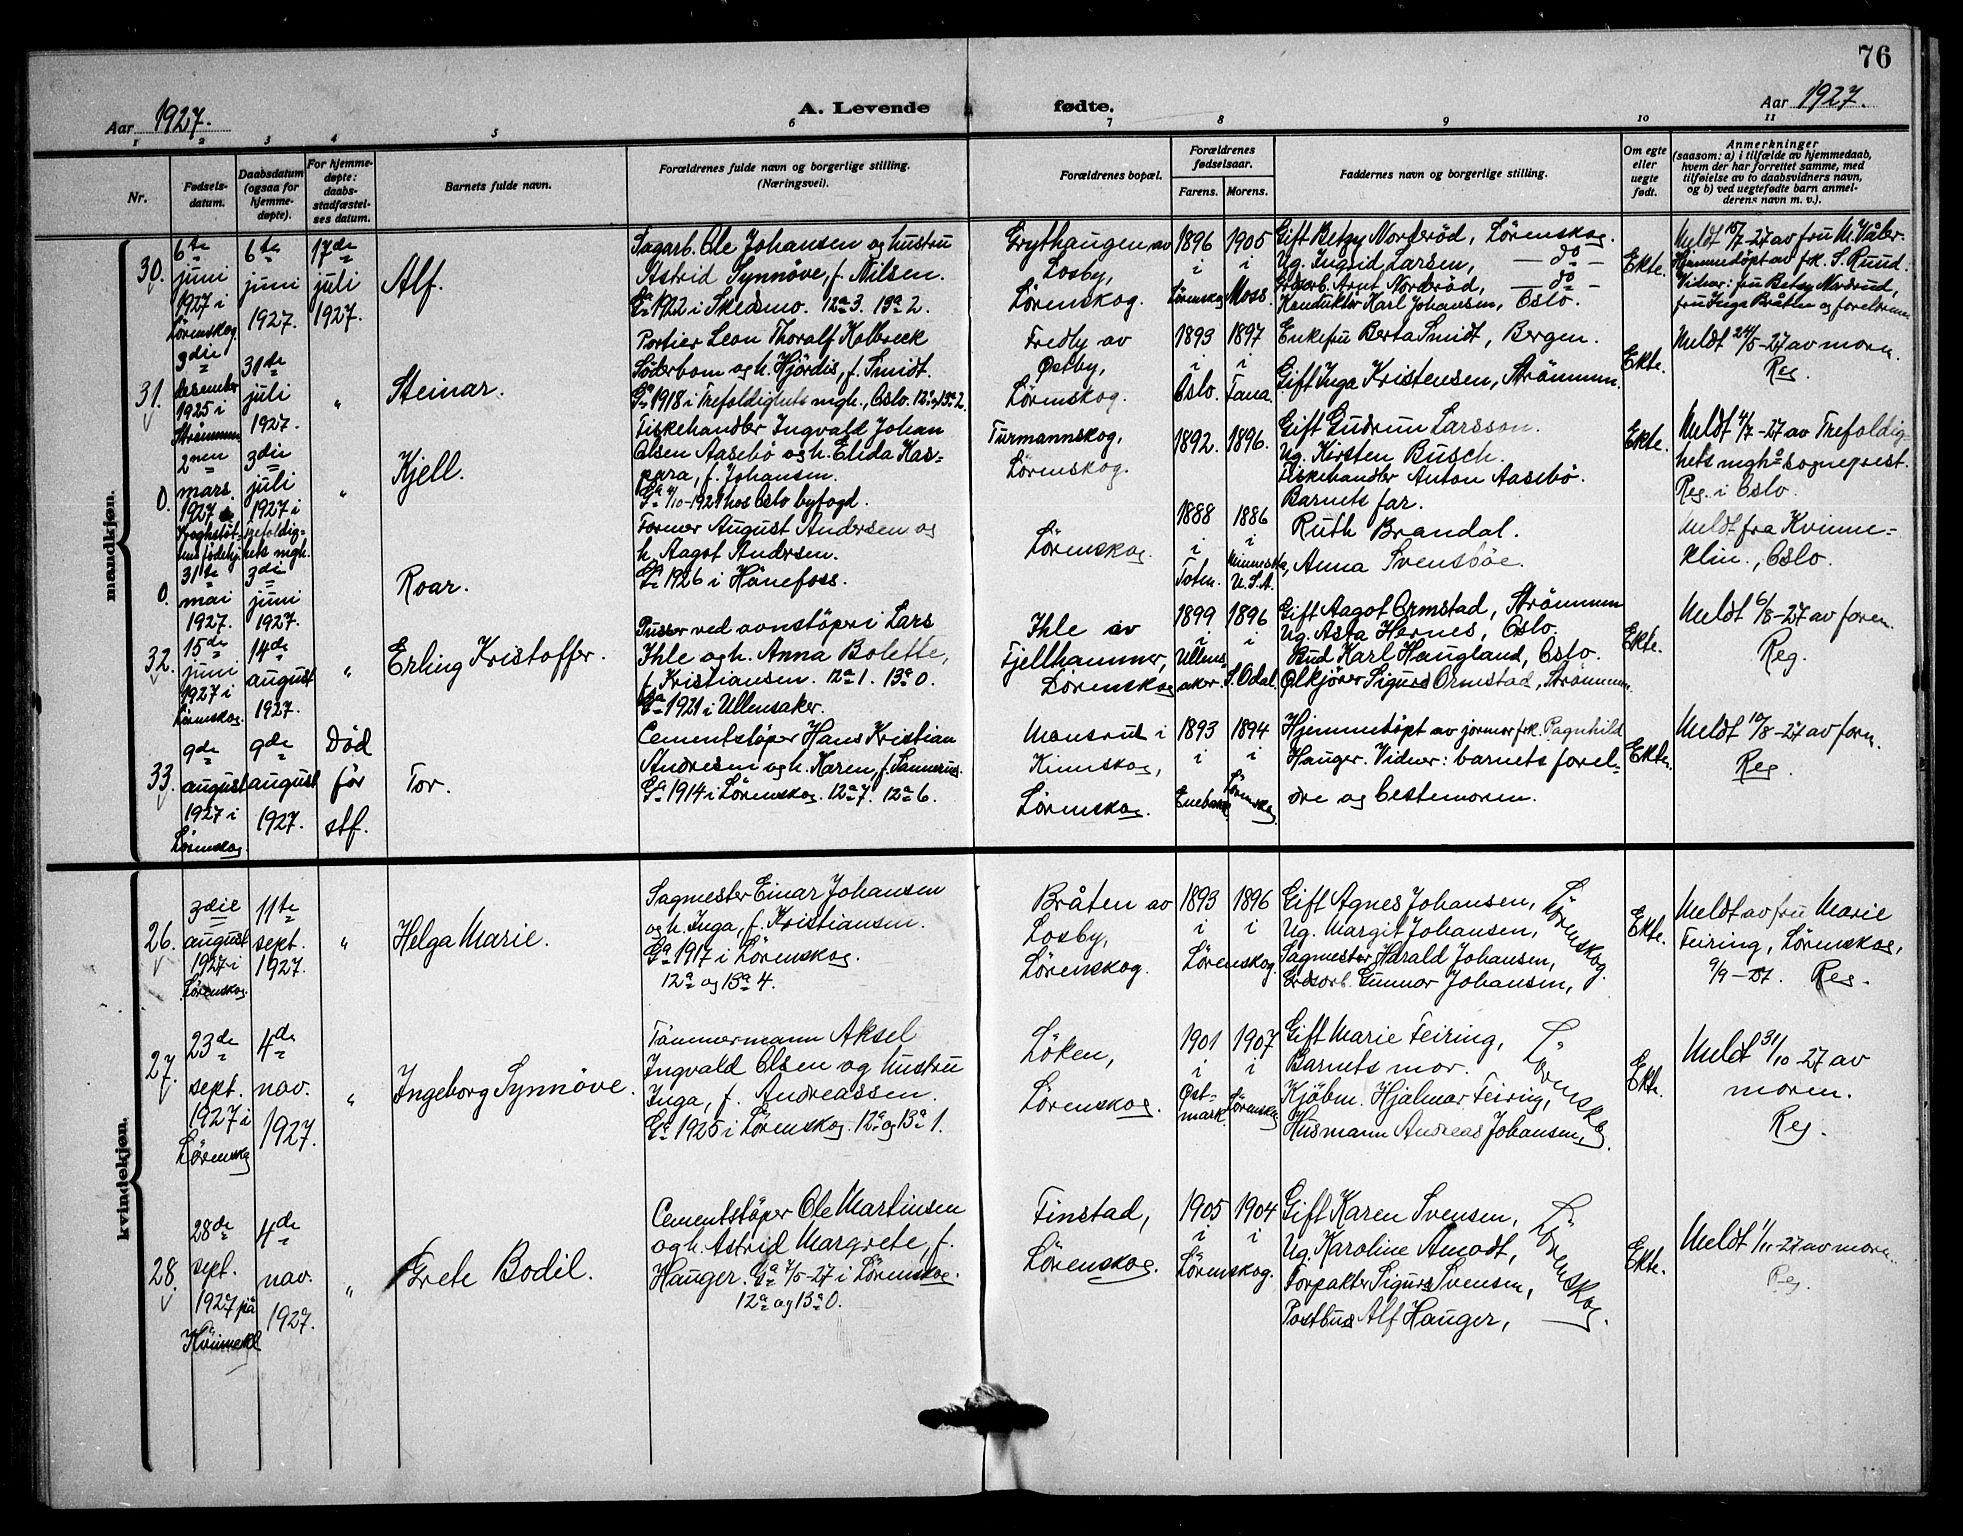 76
Aar 1927.
A. Levende fødte.
Aar 1927.
1 2 3 4 5 6 7 8 9 10 11
Nr.
Fødsels-
datum.
Daabsdatum
(ogsaa for
hjemme-
døpte).
For hjemme-
døpte:
daabs-
stadfæstel-
ses datum.
Barnets fulde navn.
Forældrenes fulde navn og borgerlige stilling.
(Næringsvei).
Forældrenes bopæl.
Forældrenes
fødselsaar.
Farens. Morens.
Faddernes navn og borgerlige stilling.
Om egte
eller
uegte
født.
Anmerkninger
(saasom: a) i tilfælde av hjemmedaab,
hvem der har forrettet samme, med
tilføielse av to daabsvidners navn,
og b) ved uegtefødte barn anmel-
derens navn m. v.).
mandkjøn.
30.
6te
juni
1927 i
Lörenskog
6te
juni
1927.
17de
juli
1927.
Alf.
Sagarb. Ole Johansen og hustru
Astrid Synnöve, f. Nilsen.
Ga 1922 i Skedsmo. 12a 3. 13a 2.
Grythaugen av
Losby,
Lörenskog.
1896
i
Lörenskog
1905
i
Moss.
Gift Betzy Norderöd, Lörenskog.
Ug. Ingrid Larsen, — do —
Gruarb. Arnt Norderöd, — do —
Konduktör Karl Johansen, Oslo.
Ekte.
Meldt 15/7-27 av fru M. Våler-
Hjemmedöpt av frk. S. Ruud.
Vidner: fru Betzy Nordrud,
fru Inga Bråten og foreldrene
31.
3die
desember
1925 i
Strömmen
31te
juli
1927.
"
Steinar.
Portier Leon Thoralf Kolbreck
Söderbom og h. Hjördis, f. Smidt.
Ga 1918 i Trefoldighets mgh., Oslo. 12a og 13a 2.
Fredby av
Östby,
Lörenskog.
1893
i
Oslo.
1897
i
Tana.
Enkefru Berta Smidt, Bergen.
Gift Inga Kristensen, Strömmen.
Ekte.
Meldt 24/5-27 av moren.
Reg.
0.
2nen
mars.
1927
3die
juli
1927 i
Trefoldig-
hets mgh.
"
Kjell.
Fiskehandler Ingvald Johan
Olsen Aasebö og h. Elida Kas-
para, f. Johansen.
Ga 4/10-1921 hos Oslo byfogd.
Turmannskog,
Lörenskog.
1892.
1896.
Gift Gudrun Larsson.
Ug. Kirsten Busch.
Fiskehandler Anton Aasebö.
Barnets far.
Ekte.
Meldt 4/7-27 av Trefoldig-
hets mgh's sogneprest.
Reg. i Oslo.
0.
31te
mai
1927.
3die
juni
1927.
Roar.
Former August Andersen og
h. Aagot Andersen.
Ga 1926 i Hönefoss.
Lörenskog.
1888
i
Toten.
1886
i
Minneska,
U.S.A.
Ruth Brandal.
Anna Svensöe.
Meldt fra Kvinne-
klin., Oslo.
32.
15de
juni
1927 i
Lörenskog.
14de
august
1927.
"
Erling Kristoffer.
Pusser ved ovnstöperi Lars
Ihle og h. Anna Bolette,
f. Kristiansen. 12a 1. 13a 0.
Ga 1921 i Ullensaker.
Ihle av
Fjellhammer,
Lörenskog
1899
i
Ullens-
aker.
1896
i
S. Odal.
Gift Aagot Ormstad, Strömmen
Ug. Asta Hernes, Oslo.
Bud Karl Haugland, Oslo.
Ölkjörer Sigurd Ormstad, Strömmen.
Ekte.
Meldt 6/8-27 av faren.
Reg.
33.
9de
august
1927 i
Lörenskog
9de
august
1927.
Död
för
stf.
Tor.
Cementstöper Hans Kristian
Andresen og h. Karen, f. Sannerud.
Ga 1914 i Lörenskog. 12a 7. 12a 6.
Monsrud i
Kinnskog,
Lörenskog.
1893
i
Enebakk
1894
i
Lörenskog.
Hjemmedöpt av jormor frk. Pagnhild
Hauger. Vidner: barnets forel-
dre og bestemoren.
Ekte.
Meldt 10/8-27 av faren.
Reg.
kvindekjøn.
26.
3die
august
1927 i
Lörenskog.
11te
sept.
1927.
"
Helga Marie.
Sagmester Einar Johansen
og h. Inga, f. Kristiansen.
Ga 1917 i Lörenskog.
12a og 13a 4.
Bråten av
Losby,
Lörenskog.
1893 1896
i i
Lörenskog.
Gift Agnes Johansen,
Ug. Margit Johansen,
Sagmester Harald Johansen,
Grdsarb. Gunnar Johansen,
Lörenskog.
Ekte.
Meldt av fru Marie
Feiring, Lörenskog,
9/9-27. Reg.
27.
23de
sept.
1927 i
Lörenskog
4de
nov.
1927.
"
Ingeborg Synnöve.
Tömmermann Aksel
Ingvald Olsen og hustru
Inga, f. Andreassen.
Ga 1925 i Lörenskog. 12a og 13a 1.
Löken,
Lörenskog.
1901
i
Öst-
mark.
1907
i
Lörenskog
Gift Marie Feiring,
Barnets mor.
Kjöbm. Hjalmar Feiring,
Husmann Andreas Johansen,
Lörenskog
Ekte.
Meldt 31/10-27 av
moren.
Reg.
28.
28de
sept.
1927 på
Kvinnekl
4de
nov.
1927.
"
Grete Bodil.
Cementstöper Ole Martinsen
og h. Astrid Margrete, f.
Hauger. Ga 7/5-27 i Lörenskog.
12a og 13a 0.
Finstad,
Lörenskog.
1905 1904
i i
Lörenskog.
Gift Karen Svensen,
Ug. Karoline Amodt,
Forpakter Sigurd Svensen,
Postbud Alf Hauger,
Lörenskog.
Ekte.
Meldt 1/11-27 av moren
Reg.